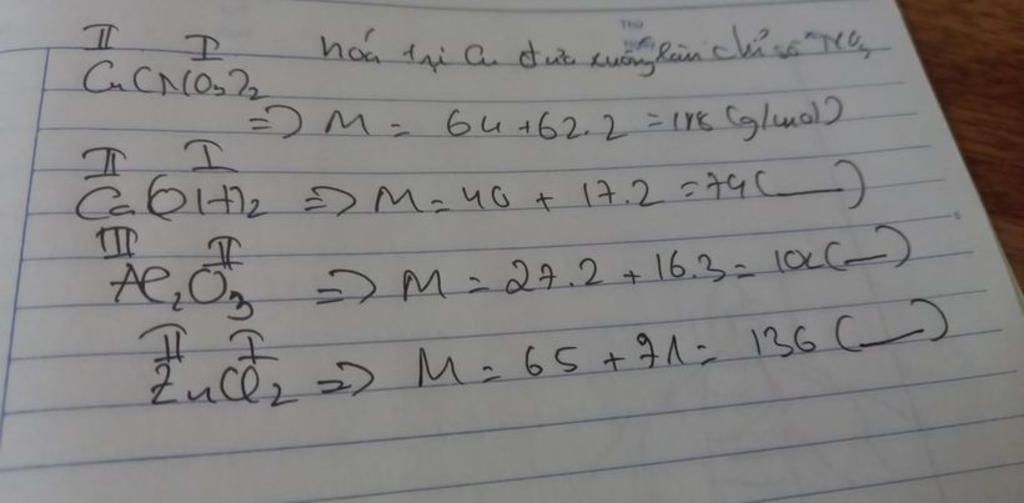 II I hoá trị Cu đưa xuống làm chỉ số NO3
Cu(NO3)2
=> M = 64 + 62.2 = 188 (g/mol)
II I
Ca(OH)2 => M = 40 + 17.2 = 74 ( — )
III II
Al2O3 => M = 27.2 + 16.3 = 102 ( — )
II I
ZnCl2 => M = 65 + 71 = 136 ( — )